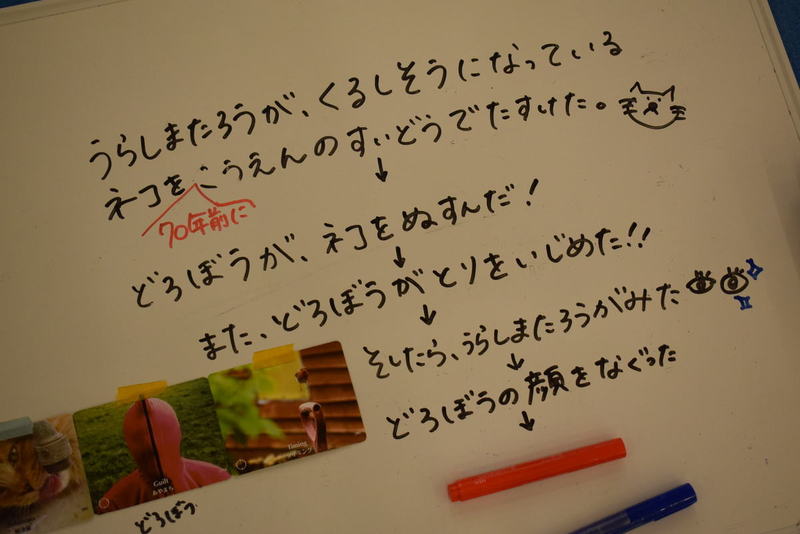 うらしまたろうが、くるしそうになっている
ネコをこうえんのすいどうでたすけた。
70年前に
どろぼうが、ネコをぬすんだ!
また、どろぼうがとりをいじめた!!
そしたら、うらしまたろうがみた
どろぼうの顔をなぐった
Guilt
あやまち
Timing
タイミング
どろぼう